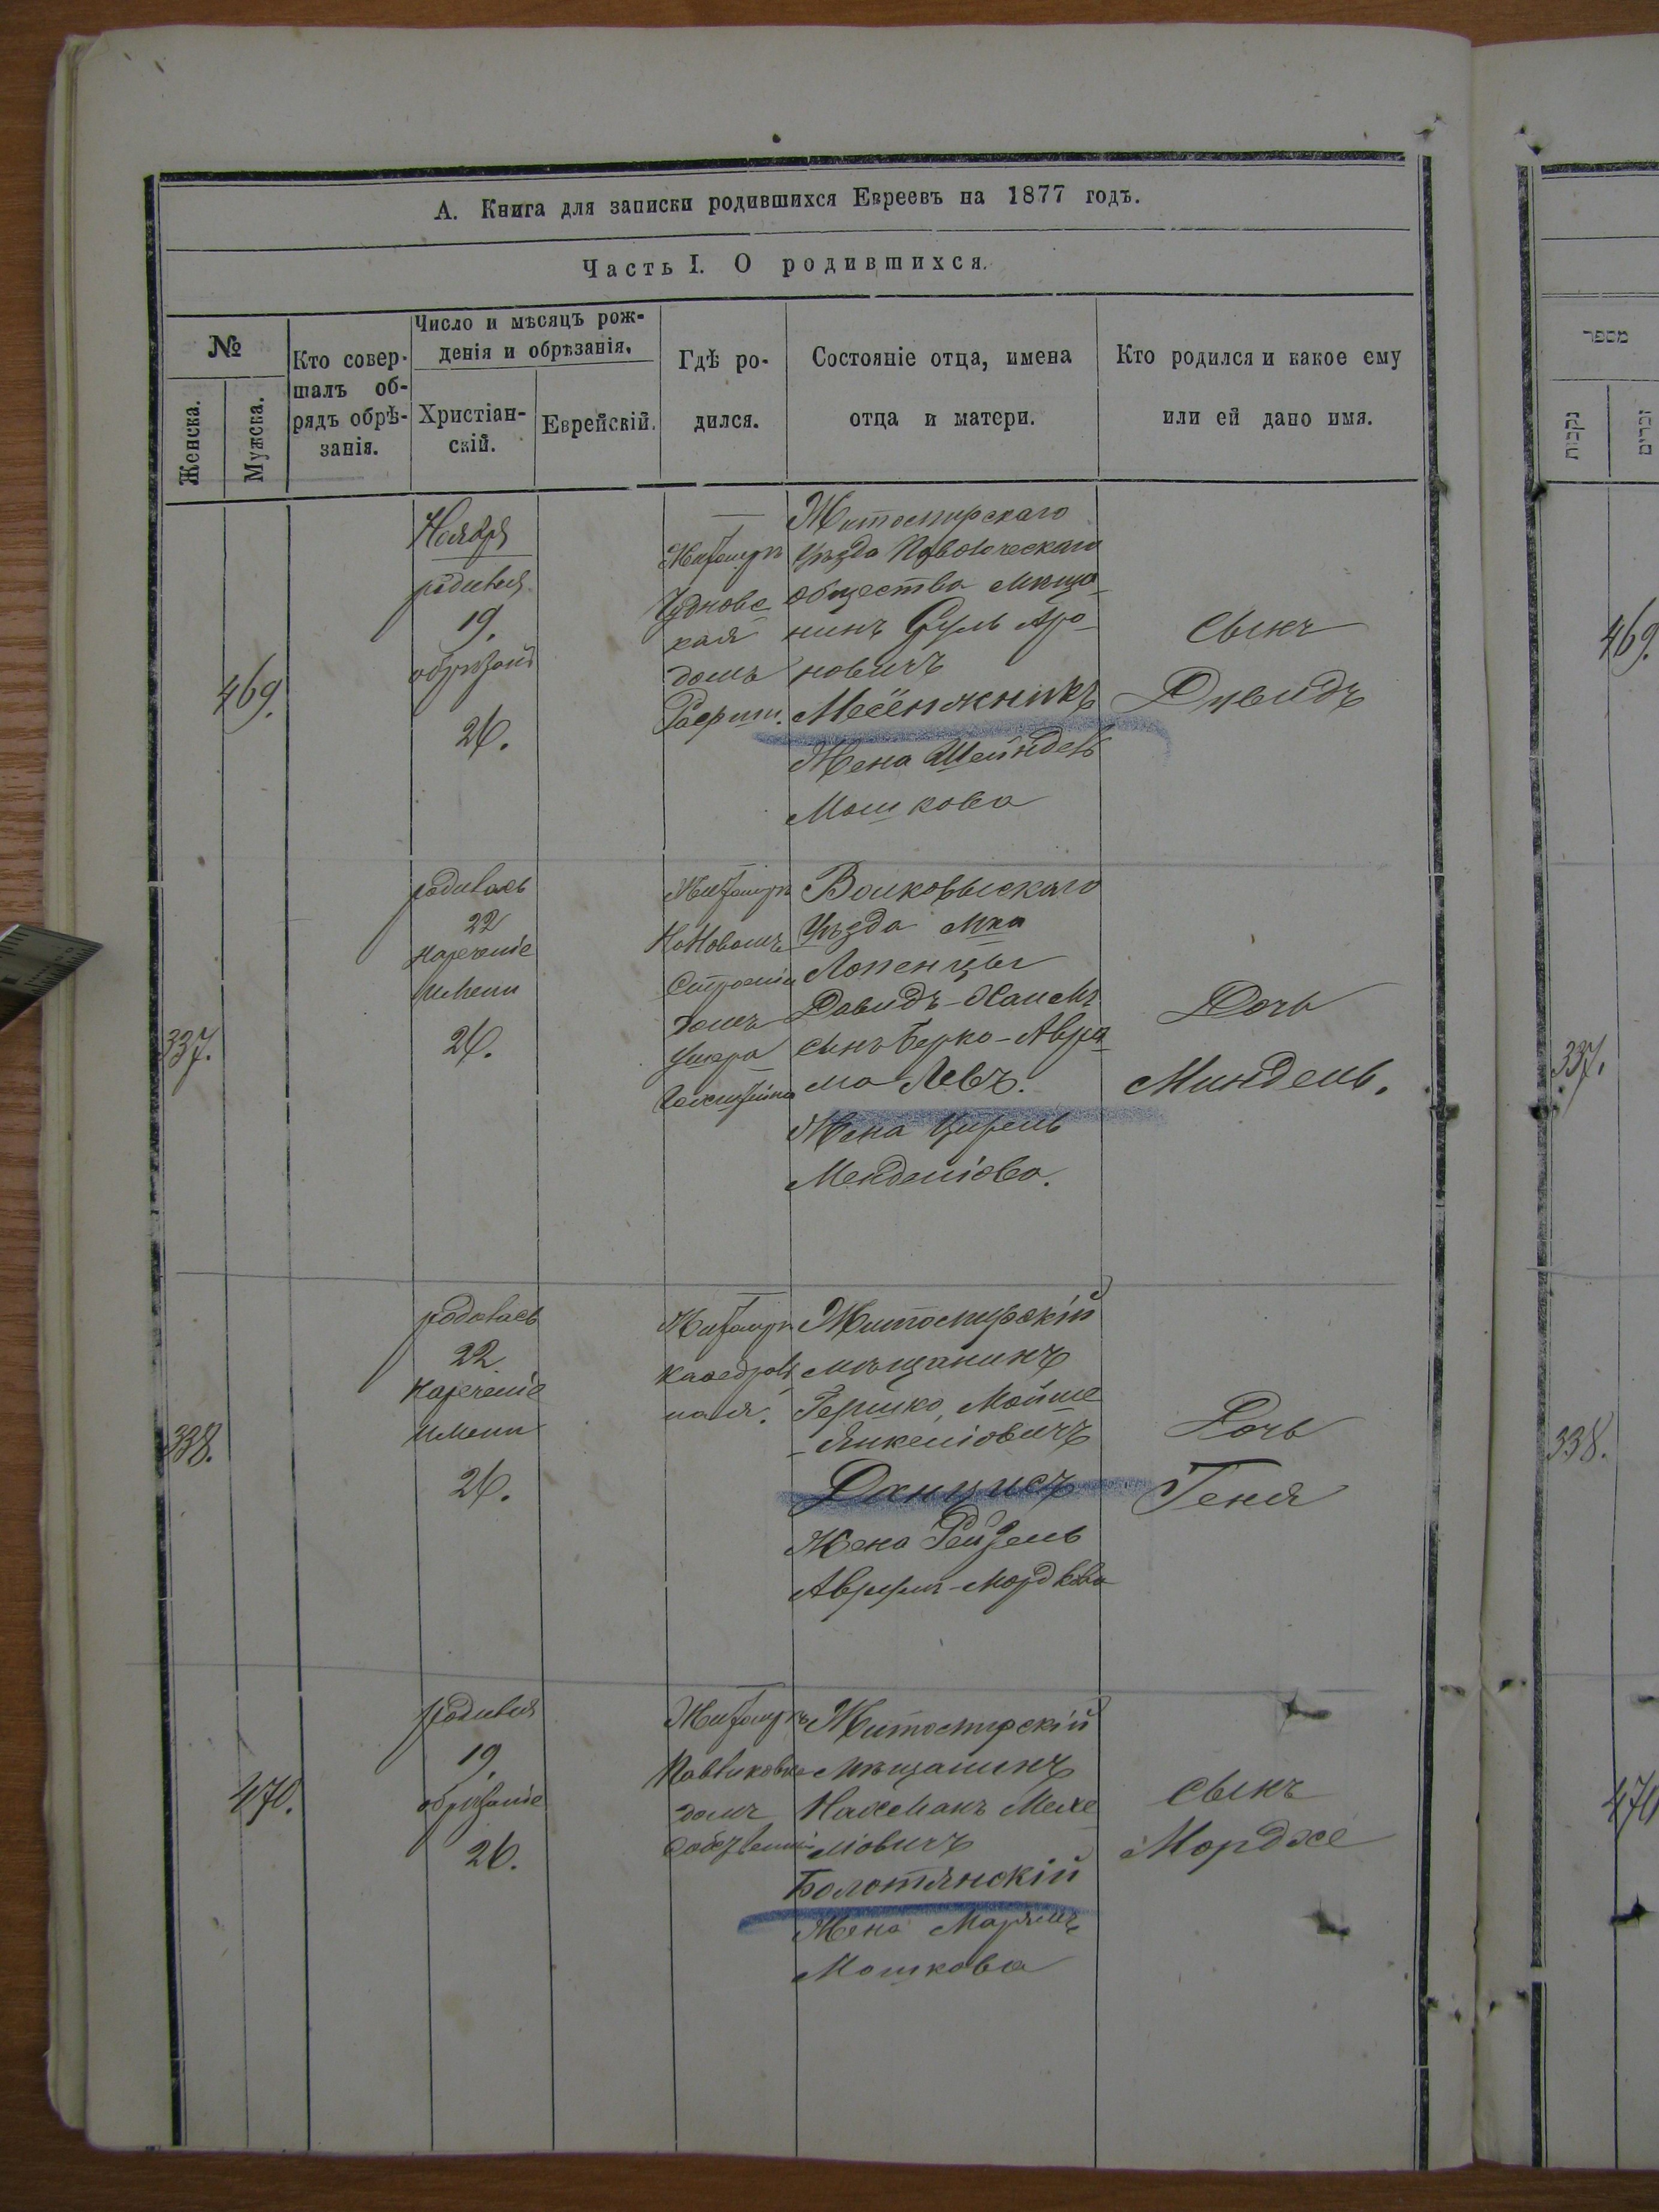 А. Книга для записки родившихся Евреевъ на 1877 годъ.
Часть I. О родившихся.
№
Женска.
Мужска.
Кто совер-
шалъ об-
рядъ обрѣ-
занія.
Число и мѣсяцъ рож-
денія и обрѣзанія.
Христіан-
скій.
Еврейскій.
Гдѣ ро-
дился.
Состояніе отца, имена
отца и матери.
Кто родился и какое ему
или ей дано имя.
469.
Ноября
родился
19.
26.
Житомиръ
Чудновс
кая
домъ
Житомирскаго
Уѣзда Паволоческаго
общества мѣща-
нинъ Сруль Аро-
новичъ
Месёнжникъ
Жена Шейндель
Мошкова
Сынъ
Дувидъ
337.
родилась
22
нареченіе
имени
26.
Житомиръ
домъ
Волковыскаго
Уѣзда м-ка
Лопеницы
Давидъ-Хаимъ
сынъ Берко-Авра-
ма Левъ.
Жена Цирель
Менделіова.
Дочь
Миндель.
338.
родилась
22.
нареченіе
имени
26.
Житомиръ
Каѳедраль
ная.
Житомирскій
мѣщанинъ
Гершко, Мойше
-Янкеліовичъ
Данцисъ
Жена Рейзель
Дочь
Геня
470.
родился
19
обрѣзаніе
26.
Житомиръ
домъ
Житомирскій
мѣщанинъ
Нахманъ Меке
ліовичъ
Болотянскій
Жена Марямъ
Мошкова
Сынъ
Мордхе
מספר
נקבות
זכרים
469.
337.
338.
470